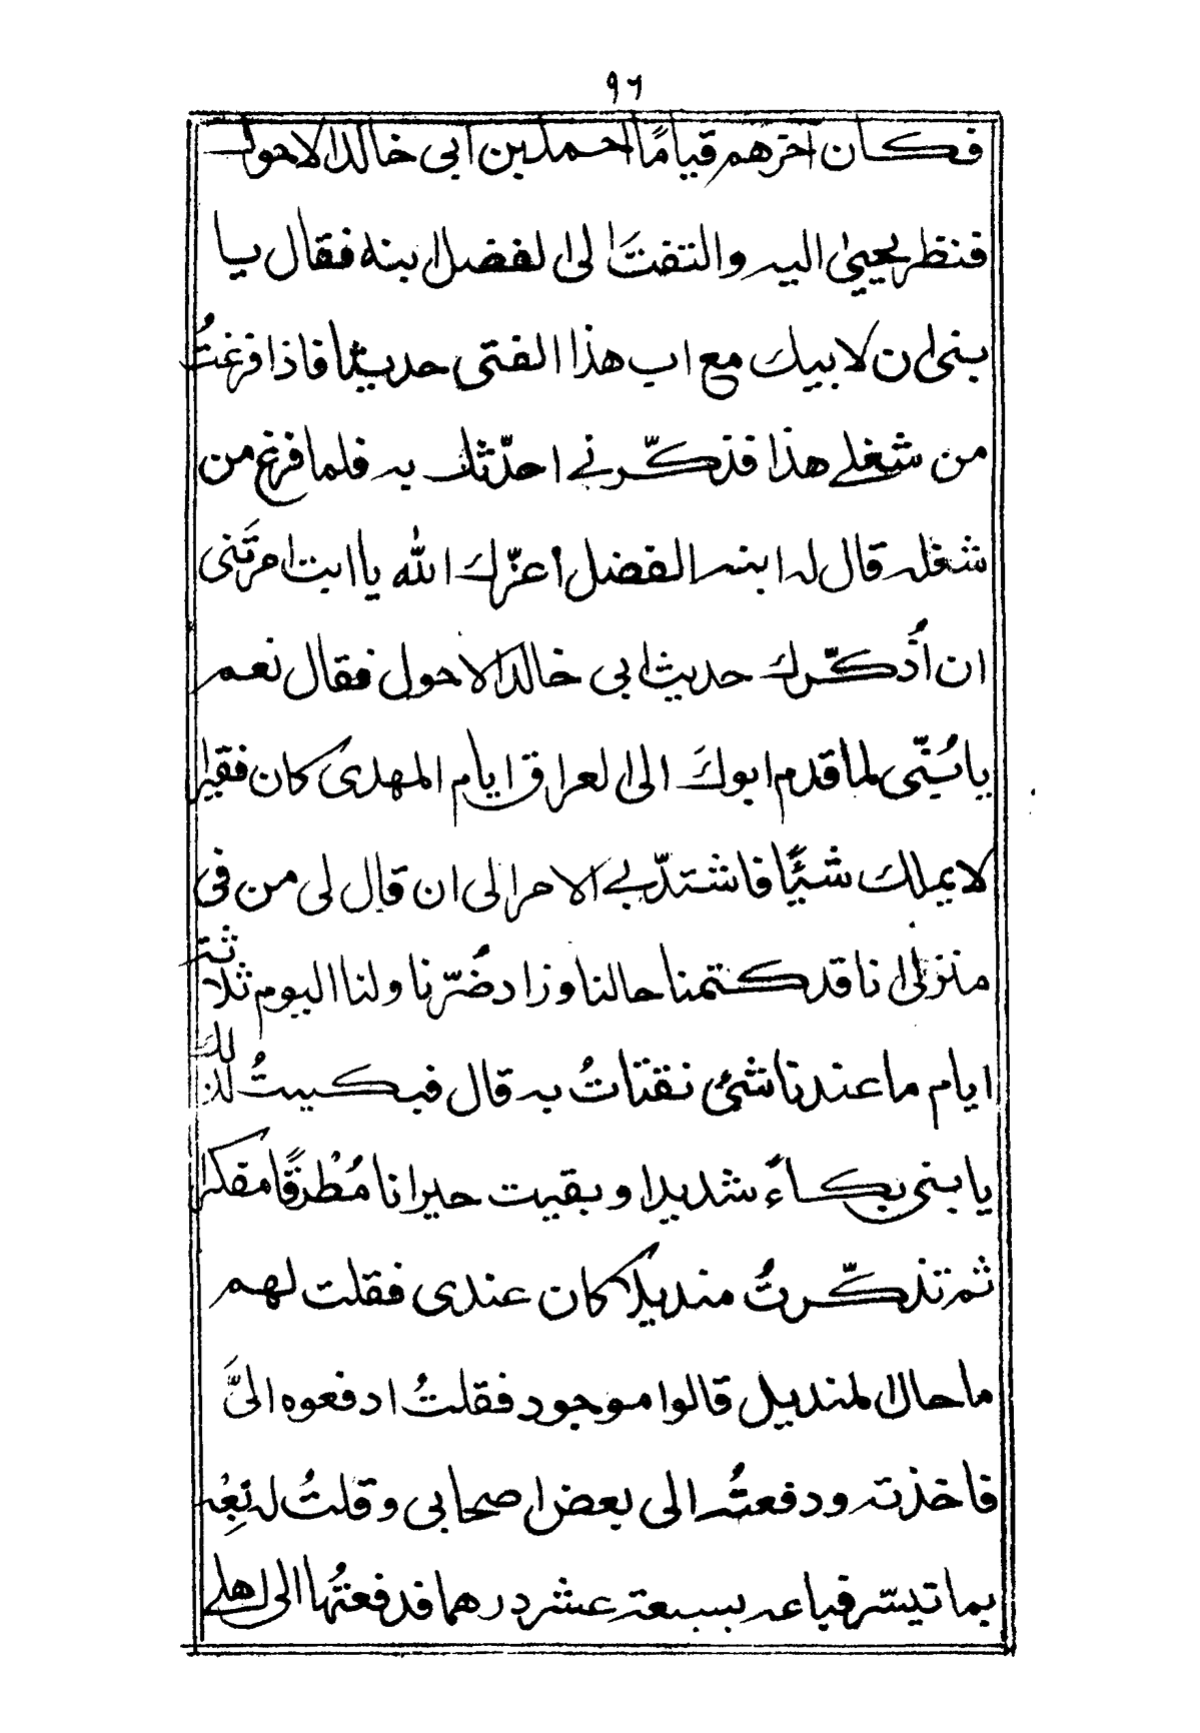 ٩٦
فكان آخرهم قيامًا احمد بن ابى خالد الاحول
فنظر يحيىٰ اليه والتفتَ الى الفضل ابنه فقال يا
بنى ان لابيك مع اب هذا الفتى حديثا فاذا فرغتُ
من شغلے هذا فذكّرنے احدّثك به فلما فرغ من
شغله قال له ابنه الفضل أعزّك الله يا ابت امرتَنى
ان أُذكّرك حديث ابى خالد الاحول فقال نعم
يا بُنَّى لما قدم ابوكَ الى العراق ايام المهدى كان فقيرا
لا يملك شيئًا فاشتدّ بے الامر الى ان قال لى من فى
منزلى انا قد كتمنا حالنا وزاد ضُرّنا ولنا اليوم ثلاثة
ايام ما عندنا شئ نقتاتُ به قال فبكيتُ لذلك
يا بنى بكاءً شديدا وبقيت حيرانا مُطْرقًا مفكرا
ثم تذكّرتُ منديلا كان عندى فقلت لهم
ما حال المنديل قالوا موجود فقلتُ ادفعوه الىَّ
فاخذته ودفعتُه الى بعض اصحابى وقلتُ له بِعْه
بما تيسّر فباعه بسبعة عشر درهما فدفعتُها الى اهلے